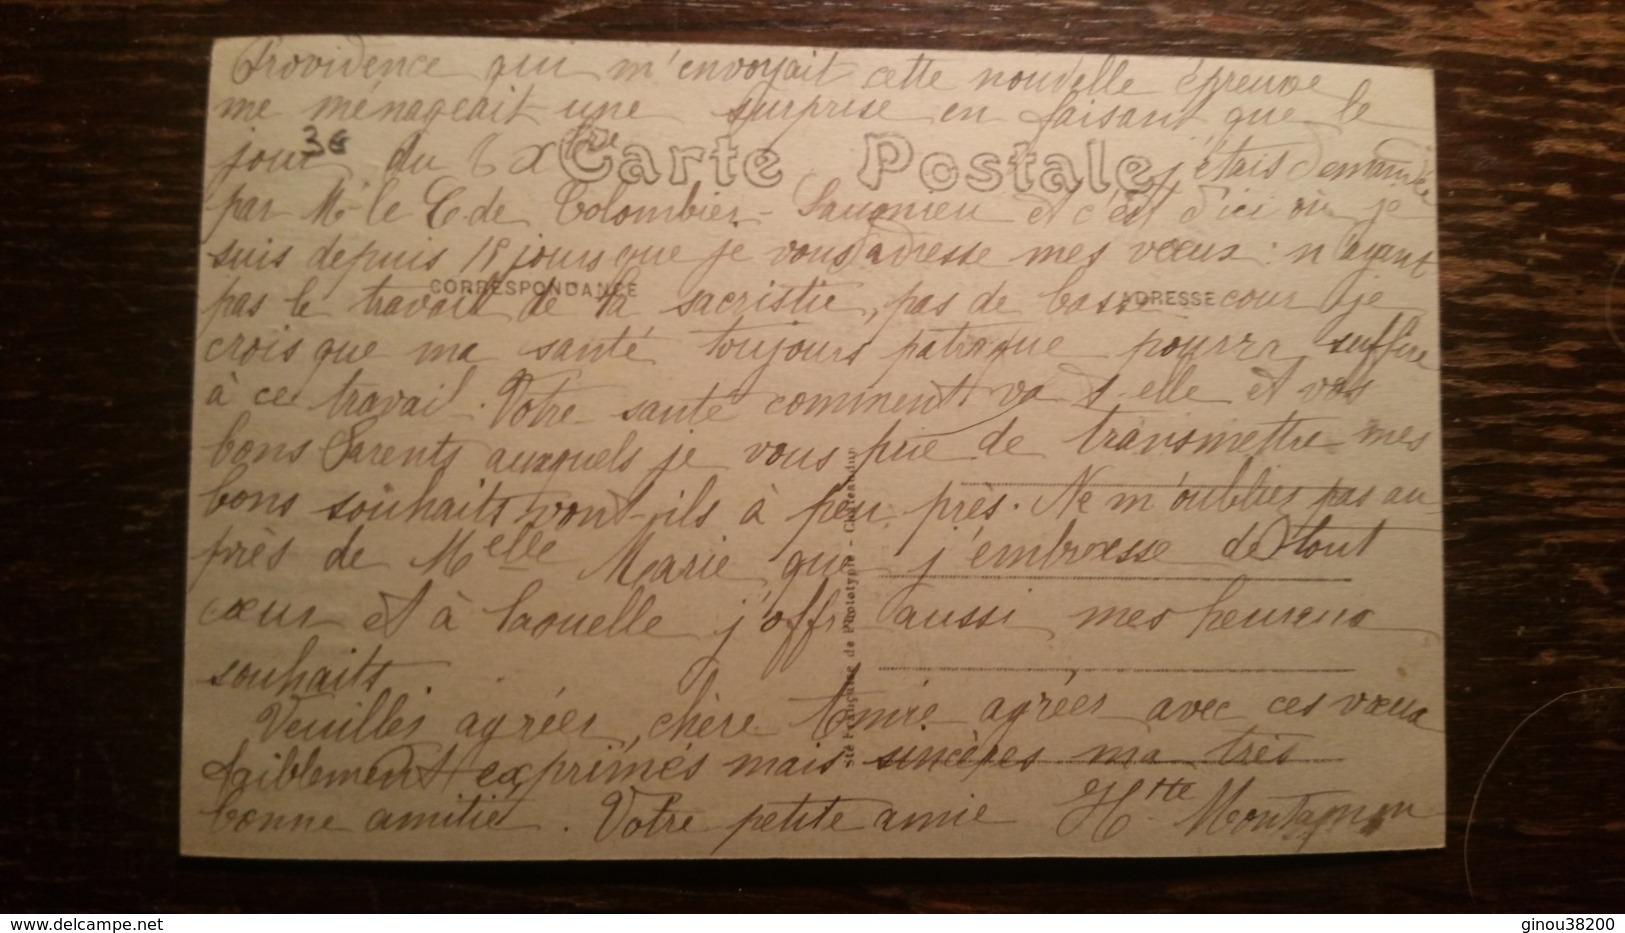 Providence qui m'envoyait cette nouvelle épreuve
me ménageait une surprise en faisant que le
3€
jour du 6 Xbre j'étais demandée
Carte Postale
par Mr le C. de Colombier-Saugnieu et c'est d'ici où je
suis depuis 15 jours que je vous adresse mes vœux : n'ayant
CORRESPONDANCE
ADRESSE
pas le travail de la sacristie, pas de basse cour je
crois que ma santé toujours patraque pourra suffire
à ce travail. Votre santé comment va-t-elle et vos
bons Parents auxquels je vous prie de transmettre mes
bons souhaits vont-ils à peu près. Ne m'oubliez pas au-
près de Melle Marie que j'embrasse de tout
cœur et à laquelle j'offre aussi mes heureux
souhaits.
Veuillez agréer, chère Amie agréer avec ces vœux
faiblement exprimés mais sincères ma très
bonne amitié. Votre petite amie Htte Montagnon
Sté Française de Phototypie - Châteaudun
delcampe.net
ginou38200